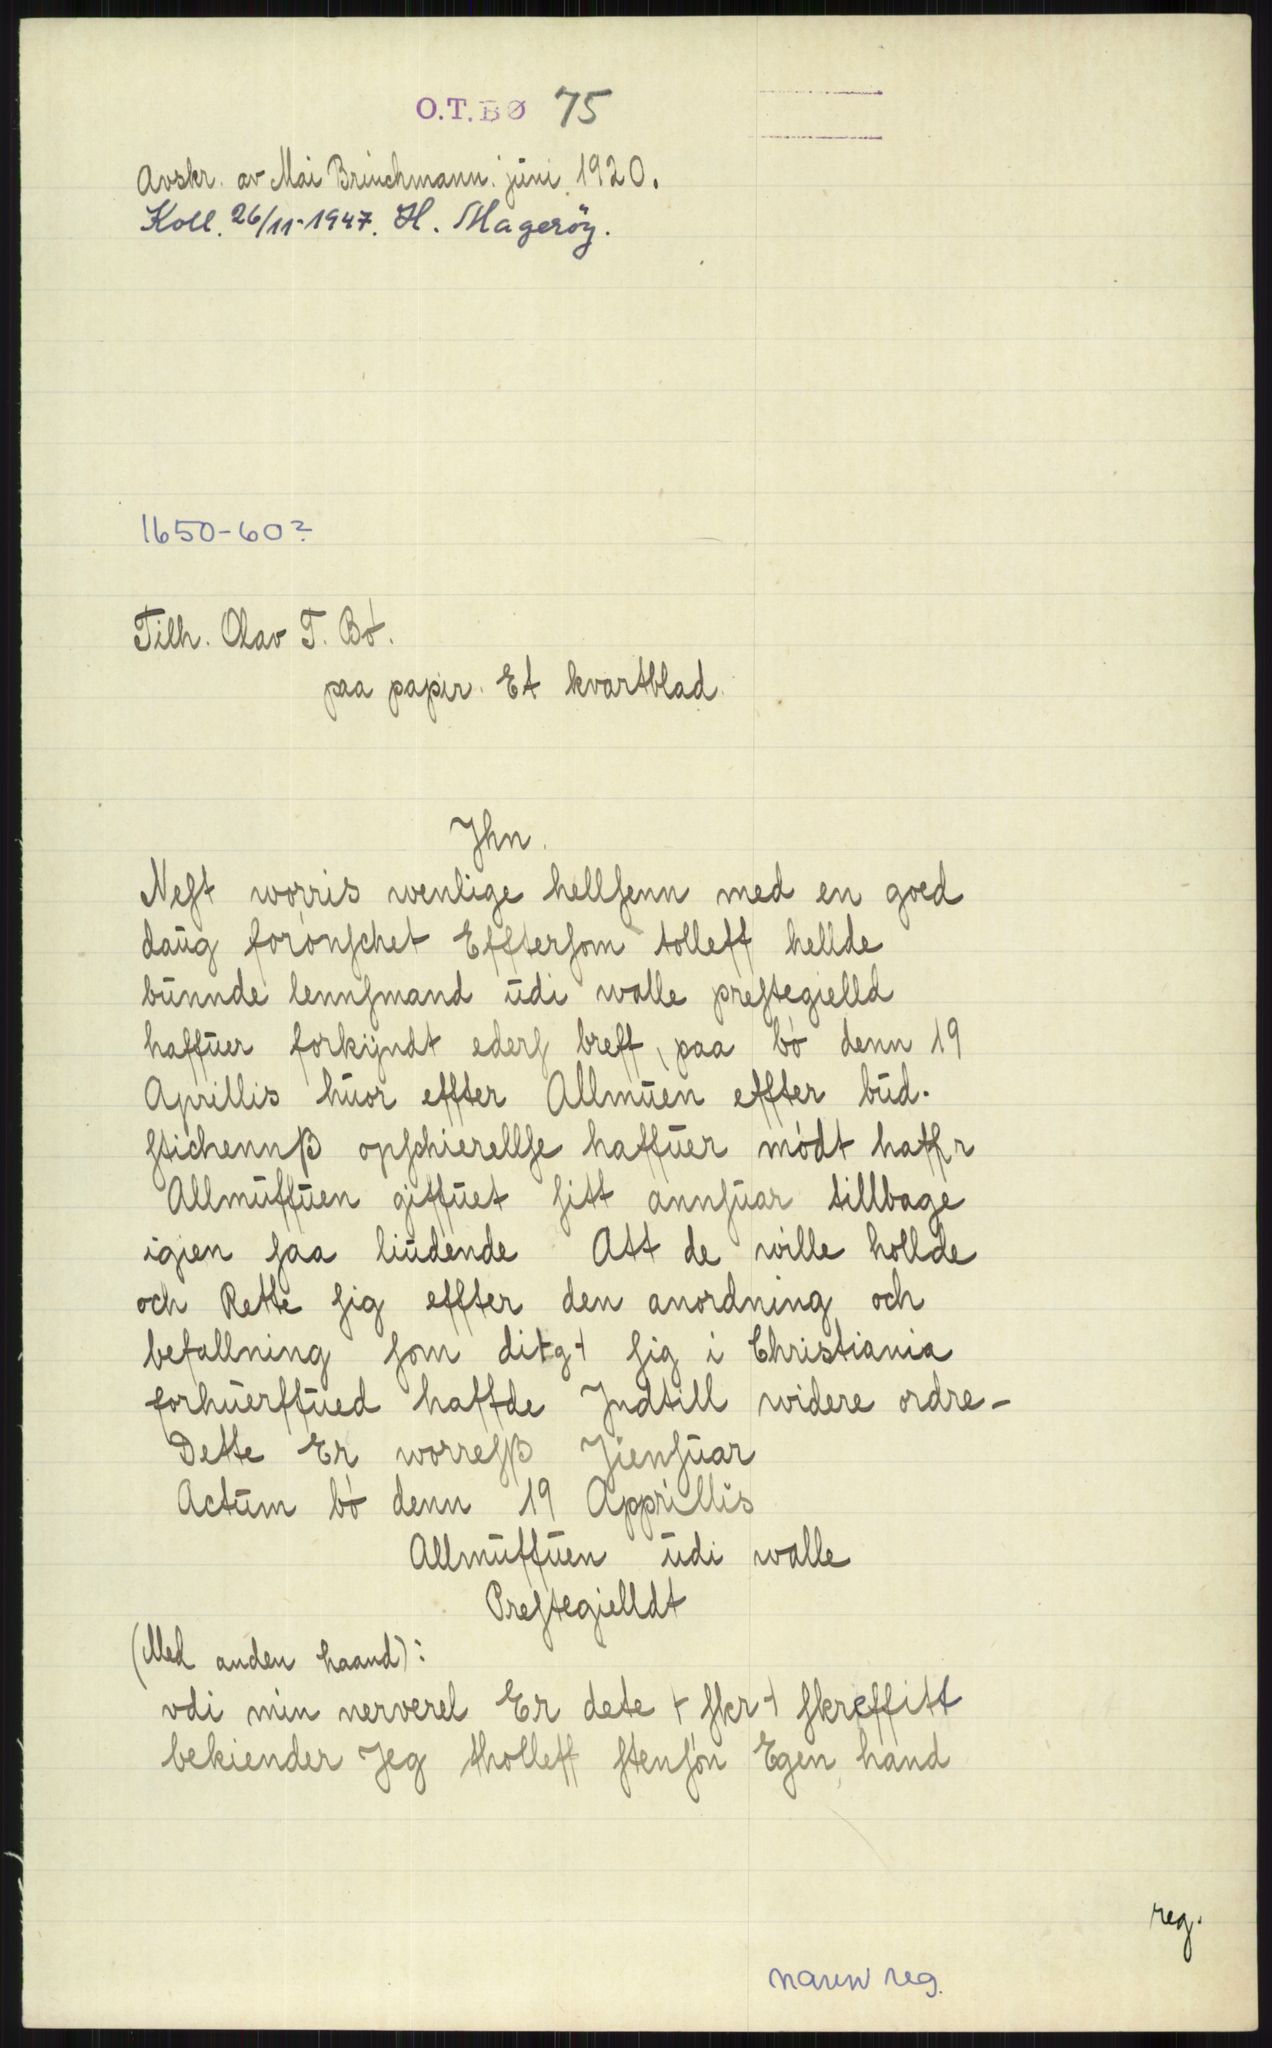 O.T.BØ 75
Avskr. av Mai Brinchmann. juni 1920.
Koll. 26/11-1947. H. Magerøy.
1650-60?
Tilh. Olav T. Bø.
paa papir. Et kvartblad.
Jhn.
Neſt worris wenlige hellſenn med en goed
daŭg forønſchet Efftersom tolleff hellde
bŭnnde lennſmand ŭdi walle preſtegielld
haffŭer forkÿndt ederſ breff, paa bø denn 19
Aprillis hŭor effter Allmŭen effter bŭd.
ſtichennß opſchierellſe haffŭer mødt haffr
Allmŭffŭen giffŭet ſitt annſŭar tillbage
igien ſaa liŭdende Att de wille hollde
och Rette ſig effter den anordning och
befallning ſom ſig i Christiania
forhŭerffŭed haffde Jndtill widere ordre-
Dette Er worreſß Jienſŭar
Actŭm bø denn 19 Apprillis
Allmŭffŭen ŭdi walle
Preſtegielldt
(Med anden haand):
vdi min nerverel Er dete + ſkr+ ſkreffitt
bekiender Jeg tholleff ſtenſøn Egen hand
reg.
navn reg.